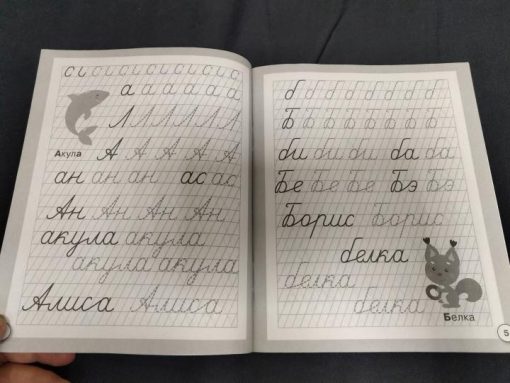 а а а а а а
Л Л Л Л Л Л
Акула А А А А А
ан ан ан ас ас
Ан Ан Ан Ан
акула акула
акула акула
Алиса Алиса
б б б б б б б б
Б Б Б Б Б Б Б
би би би ба ба
Бе Бе Бе Бэ Бэ
Борис Борис
белка
белка
белка
Белка
5